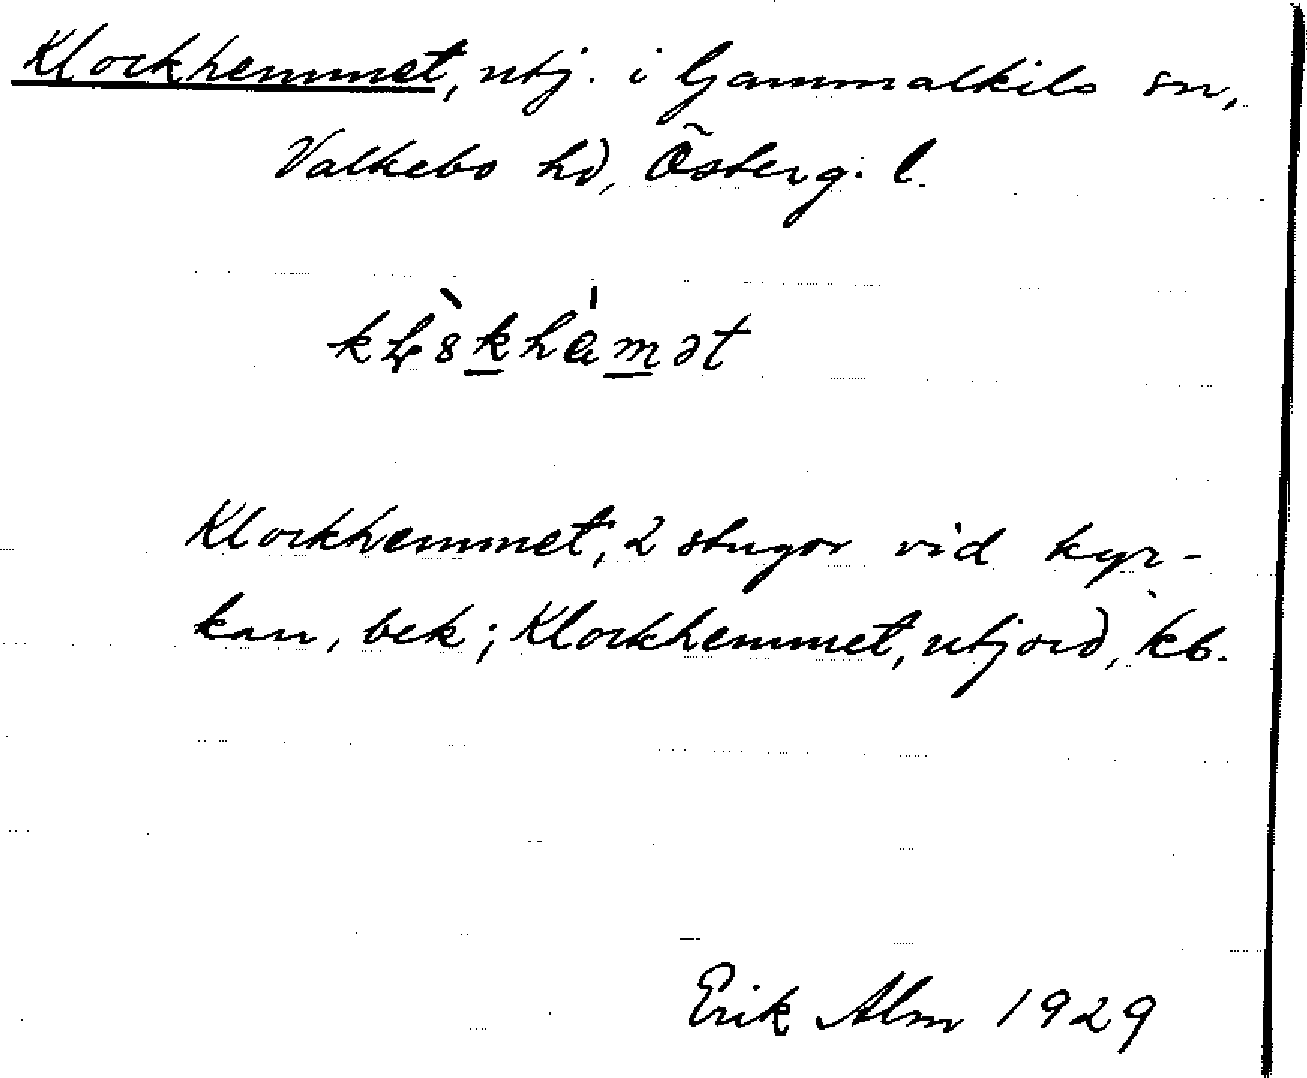 Klockhemmet, utj. i Gammalkils sn,
Valkebo hd, Österg. l.
Klockhemmet, 2 stugor vid kyr-
kan, bek; Klockhemmet, utjord, kb.
Erik Alm 1929